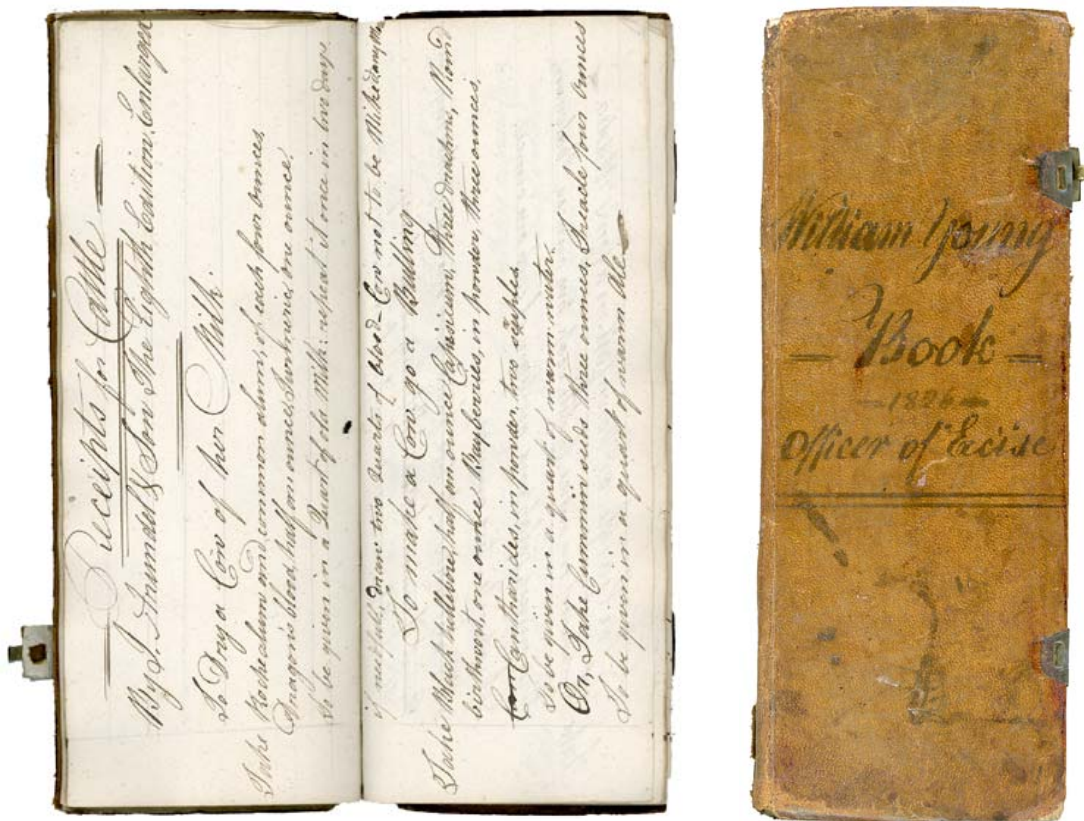 Receipts for Cattle
By J. & Son The Eighth Edition Enlarged
To Dry a Cow of her Milk.
Take Roche alum and common alum, of each four ounces
Dragons blood, half an ounce, one ounce.
To be given in a Quart of old Milk: repeat it once in two days
if needful: Draw two Quarts of blood – Cow not to be Milked any
To make a Cow go a Bulling
Take Black hellebore, half an ounce, three drachms, Round
birthwort, one ounce Bayberries, in powder, three ounces,
Cantharides, in powder, two
To be given in a quart of warm water.
Or, Take Cummin seeds three ounces, Treacle four ounces
To be given in a quart of warm Ale
William Young
Book
1826
Officer of Excise